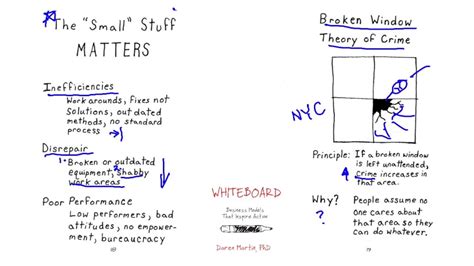 The "Small" Stuff
MATTERS
Inefficiencies
Work arounds, fixes not
solutions, outdated
methods, no standard
process
Disrepair
1. Broken or outdated
equipment, 2 shabby
work areas
Poor Performance
Low performers, bad
attitudes, no empower-
ment, bureaucracy
WHITEBOARD
Business Models
That Inspire Action
Daren Martin, PhD
Broken Window
Theory of Crime
NYC
Principle: If a broken window
is left unattended,
crime increases in
that area.
Why? People assume no
? one cares about
that area so they
can do whatever.